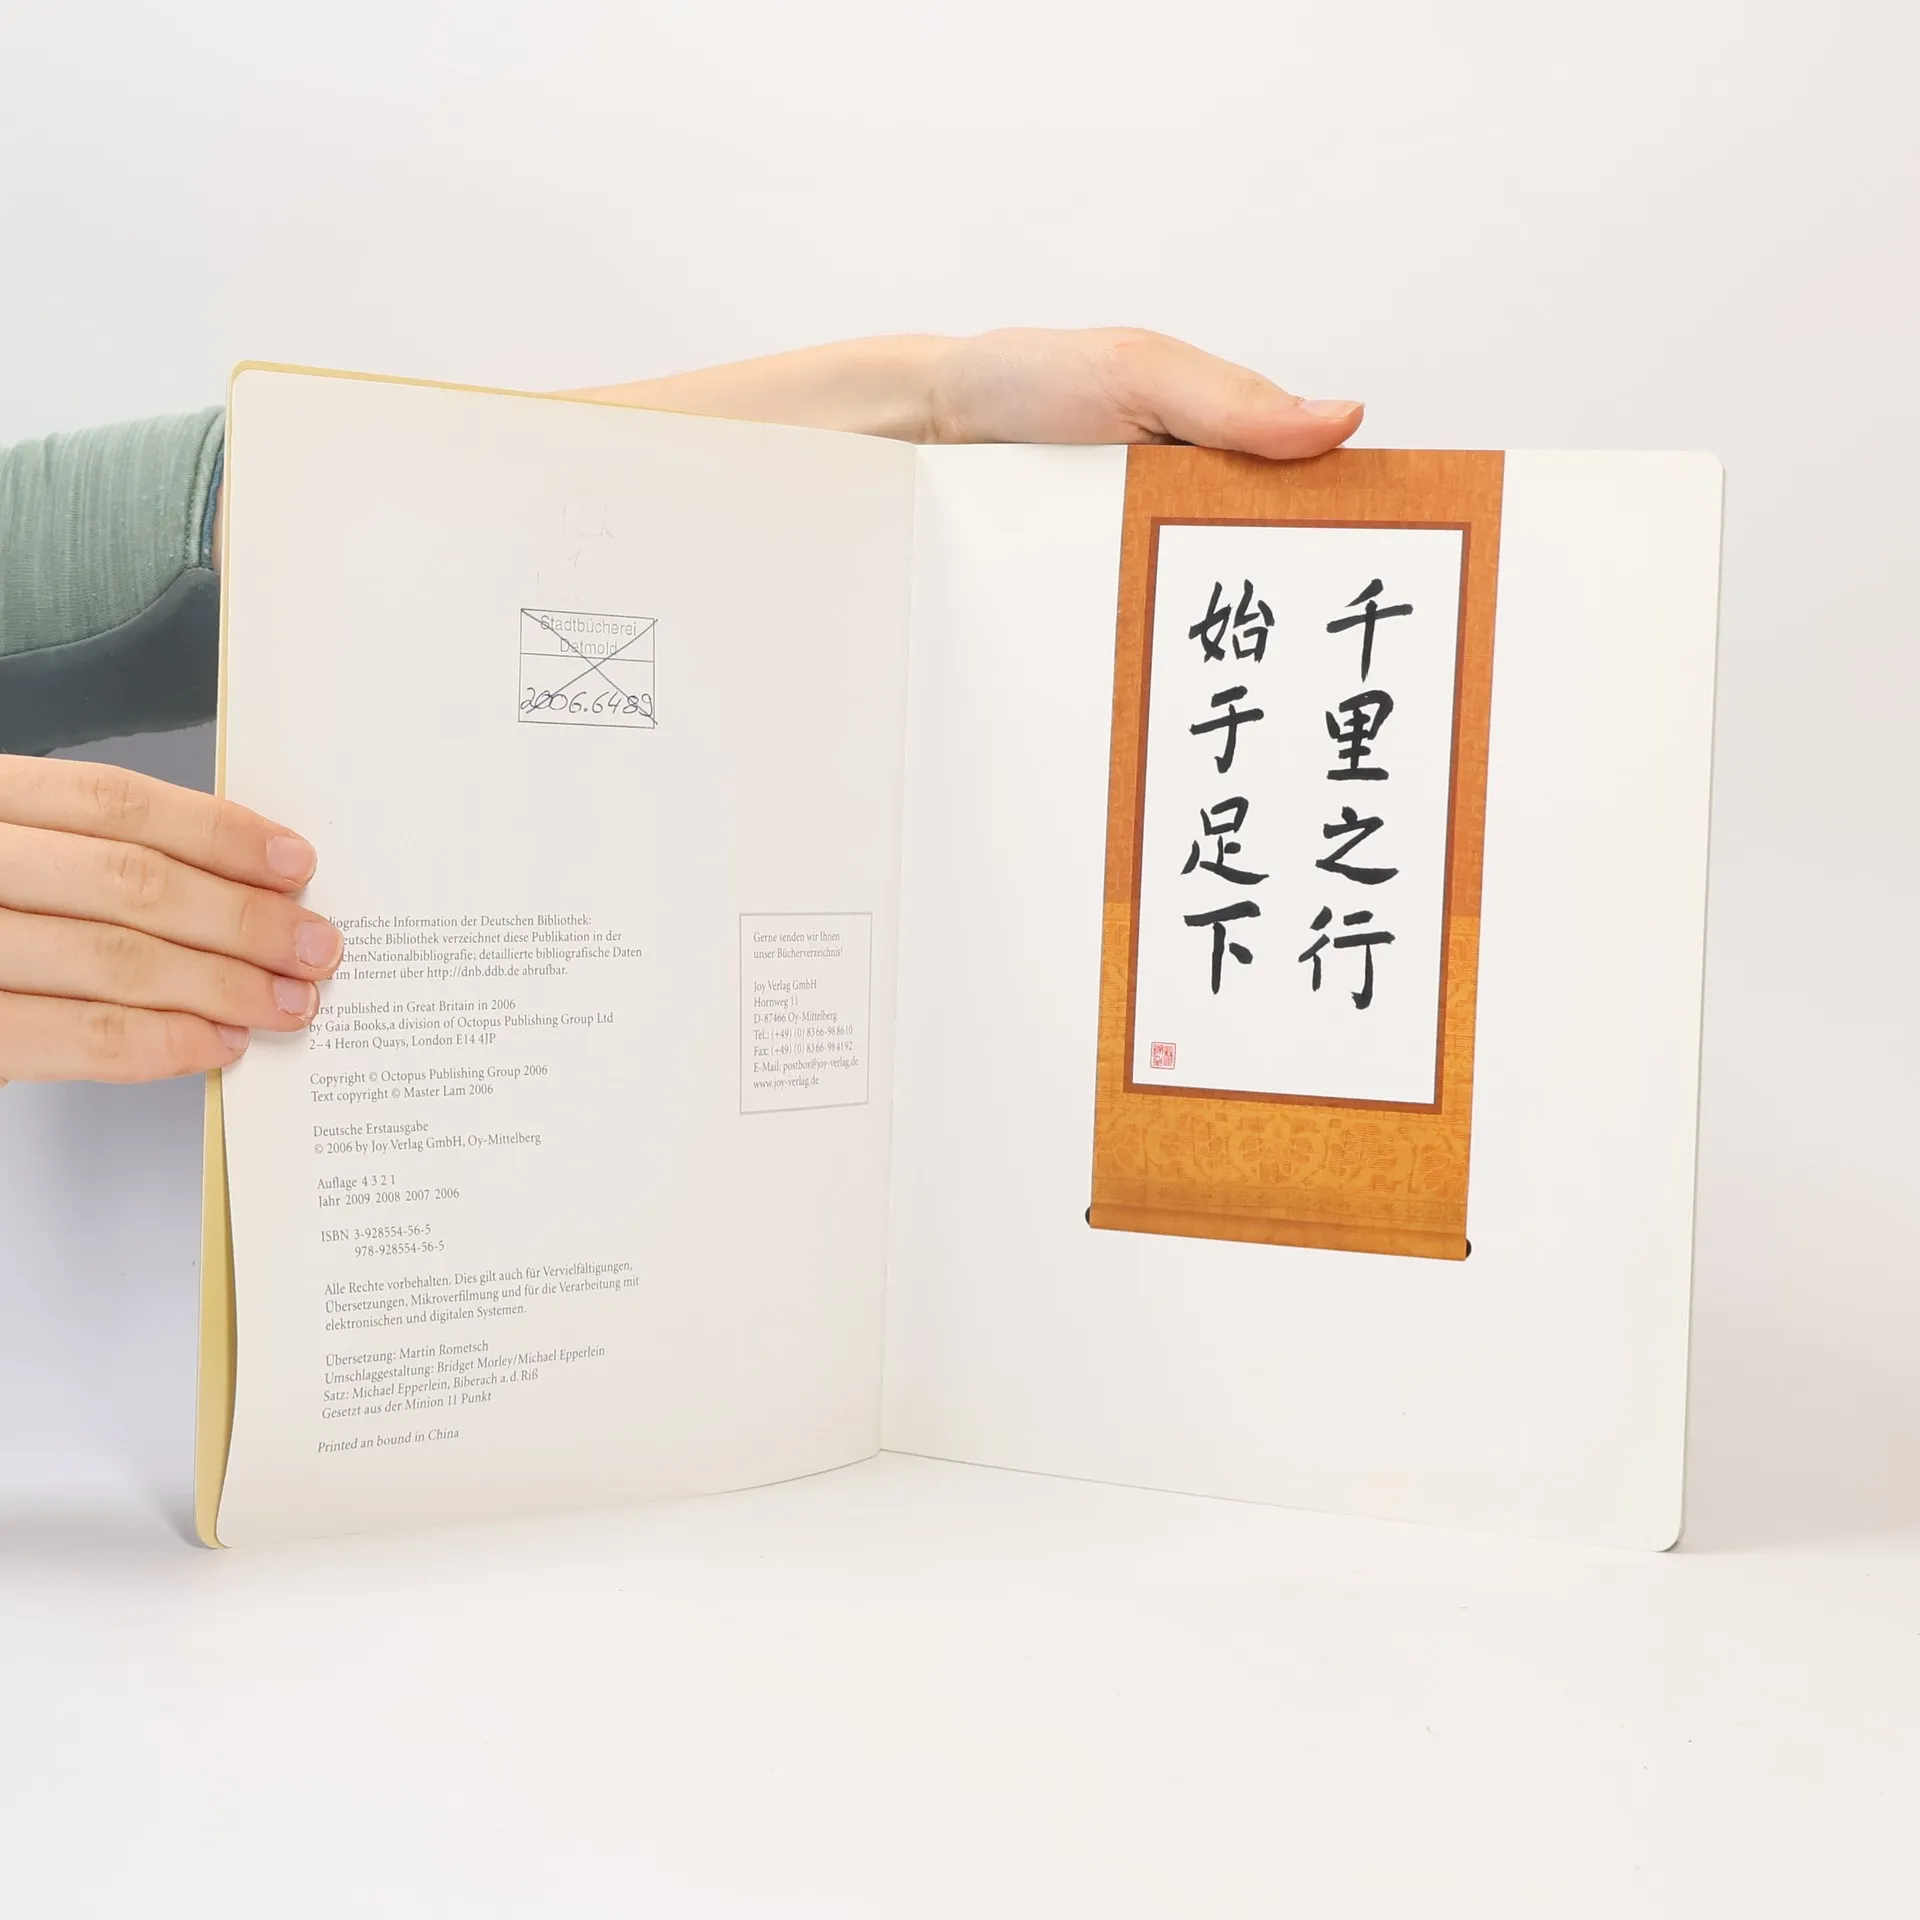 Stadtbücherei
Detmold
2006.6489
liografische Information der Deutschen Bibliothek:
eutsche Bibliothek verzeichnet diese Publikation in der
chenNationalbibliografie; detaillierte bibliografische Daten
im Internet über http://dnb.ddb.de abrufbar.
rst published in Great Britain in 2006
by Gaia Books,a division of Octopus Publishing Group Ltd
2–4 Heron Quays, London E14 4JP
Copyright © Octopus Publishing Group 2006
Text copyright © Master Lam 2006
Deutsche Erstausgabe
© 2006 by Joy Verlag GmbH, Oy-Mittelberg
Auflage 4 3 2 1
Jahr 2009 2008 2007 2006
ISBN 3-928554-56-5
978-928554-56-5
Alle Rechte vorbehalten. Dies gilt auch für Vervielfältigungen,
Übersetzungen, Mikroverfilmung und für die Verarbeitung mit
elektronischen und digitalen Systemen.
Übersetzung: Martin Rometsch
Umschlaggestaltung: Bridget Morley/Michael Epperlein
Satz: Michael Epperlein, Biberach a. d. Riß
Gesetzt aus der Minion 11 Punkt
Printed an bound in China
Gerne senden wir Ihnen
unser Bücherverzeichnis!
Joy Verlag GmbH
Hornweg 11
D-87466 Oy-Mittelberg
Tel.: (+49) (0) 8366-98 8610
Fax: (+49) (0) 8366-98 4192
E-Mail: postbox@joy-verlag.de
www.joy-verlag.de
千里之行
始于足下